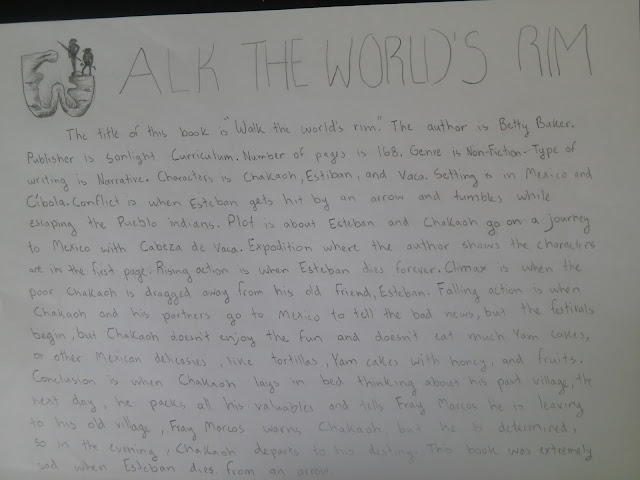 WALK THE WORLD'S RIM
The title of this book is "Walk the world's rim." The author is Betty Baker.
Publisher is Sonlight Curriculum. Number of pages is 168. Genre is Non-Fiction. Type of
writing is Narrative. Characters is Chakaoh, Estiban, and Vaca. Setting is in Mexico and
Cibola. Conflict is when Esteban gets hit by an arrow and tumbles while
escaping the Pueblo indians. Plot is about Esteban and Chakaoh go on a journey
to Mexico with Cabeza de Vaca. Expodition where the author shows the characters
are in the first page. Rising action is when Esteban dies forever. Climax is when the
poor Chakaoh is dragged away from his old friend, Esteban. Falling action is when
Chakaoh and his partners go to Mexico to tell the bad news, but the festivals
begin, but Chakaoh doesn't enjoy the fun and doesn't eat much Yam cakes,
or other Mexican delicasies, like tortillas, Yam cakes with honey, and fruits.
Conclusion is when Chakaoh lays in bed thinking about his past village, the
next day, he packs all his valuables and tells Fray Marcos he is leaving
to his old village, Fray Marcos warns Chakaoh, but he is determined,
so in the evening, Chakaoh departs to his destiny. This book was extremely
sad when Esteban dies from an arrow.